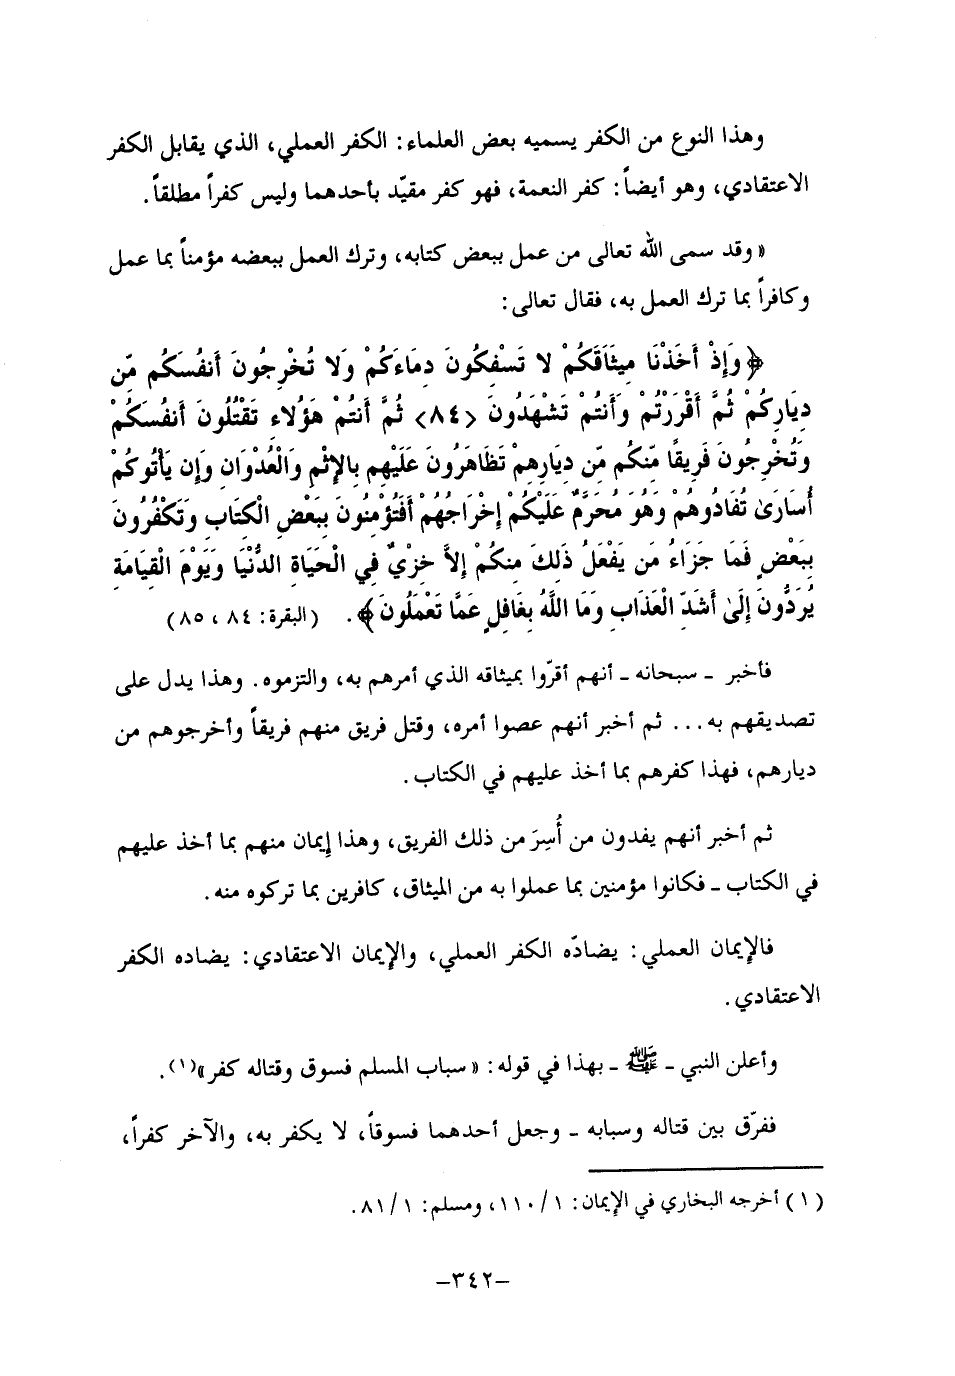 وهذا النوع من الكفر يسميه بعض العلماء: الكفر العملي، الذي يقابل الكفر
الاعتقادي، وهو أيضاً: كفر النعمة، فهو كفر مقيّد بأحدهما وليس كفراً مطلقاً.
« وقد سمى الله تعالى من عمل ببعض كتابه، وترك العمل ببعضه مؤمناً بما عمل
وكافراً بما ترك العمل به، فقال تعالى:
﴿ وَإِذْ أَخَذْنَا مِيثَاقَكُمْ لا تَسْفِكُونَ دِمَاءَكُمْ وَلا تُخْرِجُونَ أَنفُسَكُم مِّن
دِيَارِكُمْ ثُمَّ أَقْرَرْتُمْ وَأَنتُمْ تَشْهَدُونَ <٨٤> ثُمَّ أَنتُمْ هَؤُلاءِ تَقْتُلُونَ أَنفُسَكُمْ
وَتُخْرِجُونَ فَرِيقًا مِّنكُم مِّن دِيَارِهِمْ تَظَاهَرُونَ عَلَيْهِم بِالإِثْمِ وَالْعُدْوَانِ وَإِن يَأْتُوكُمْ
أُسَارَىٰ تُفَادُوهُمْ وَهُوَ مُحَرَّمٌ عَلَيْكُمْ إِخْرَاجُهُمْ أَفَتُؤْمِنُونَ بِبَعْضِ الْكِتَابِ وَتَكْفُرُونَ
بِبَعْضٍ فَمَا جَزَاءُ مَن يَفْعَلُ ذَلِكَ مِنكُمْ إِلاَّ خِزْيٌ فِي الْحَيَاةِ الدُّنْيَا وَيَوْمَ الْقِيَامَةِ
يُرَدُّونَ إِلَىٰ أَشَدِّ الْعَذَابِ وَمَا اللَّهُ بِغَافِلٍ عَمَّا تَعْمَلُونَ ﴾. (البقرة: ٨٤، ٨٥)
فأخبر ـ سبحانه ـ أنهم أقرّوا بميثاقه الذي أمرهم به، والتزموه. وهذا يدل على
تصديقهم به... ثم أخبر أنهم عصوا أمره، وقتل فريق منهم فريقاً وأخرجوهم من
ديارهم، فهذا كفرهم بما أخذ عليهم في الكتاب.
ثم أخبر أنهم يفدون من أُسِرَ من ذلك الفريق، وهذا إيمان منهم بما أخذ عليهم
في الكتاب ـ فكانوا مؤمنين بما عملوا به من الميثاق، كافرين بما تركوه منه.
فالإيمان العملي: يضادّه الكفر العملي، والإيمان الاعتقادي: يضاده الكفر
الاعتقادي.
وأعلن النبي ـ ﷺ ـ بهذا في قوله: « سباب المسلم فسوق وقتاله كفر»(١).
ففرّق بين قتاله وسبابه ـ وجعل أحدهما فسوقاً، لا يكفر به، والآخر كفراً،
(١) أخرجه البخاري في الإيمان: ١/ ١١٠، ومسلم: ١/ ٨١.
–٣٤٢–